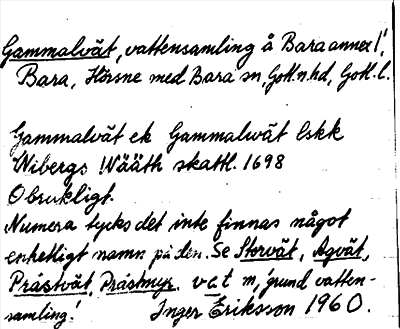 Gammalvät, vattensamling å Bara annex 1/,
Bara, Hörsne med Bara sn, Gotl.n.hd, Gotl. l.
Gammalvät ek Gammalwät lskk
Wibergs Wääth skattl. 1698
Obrukligt.
Numera tycks det inte finnas något
enhetligt namn på den. Se Storvät, Agvät,
Prästvät, Prästmyr. vat m, 'grund vatten-
samling.' Inger Eriksson 1960.